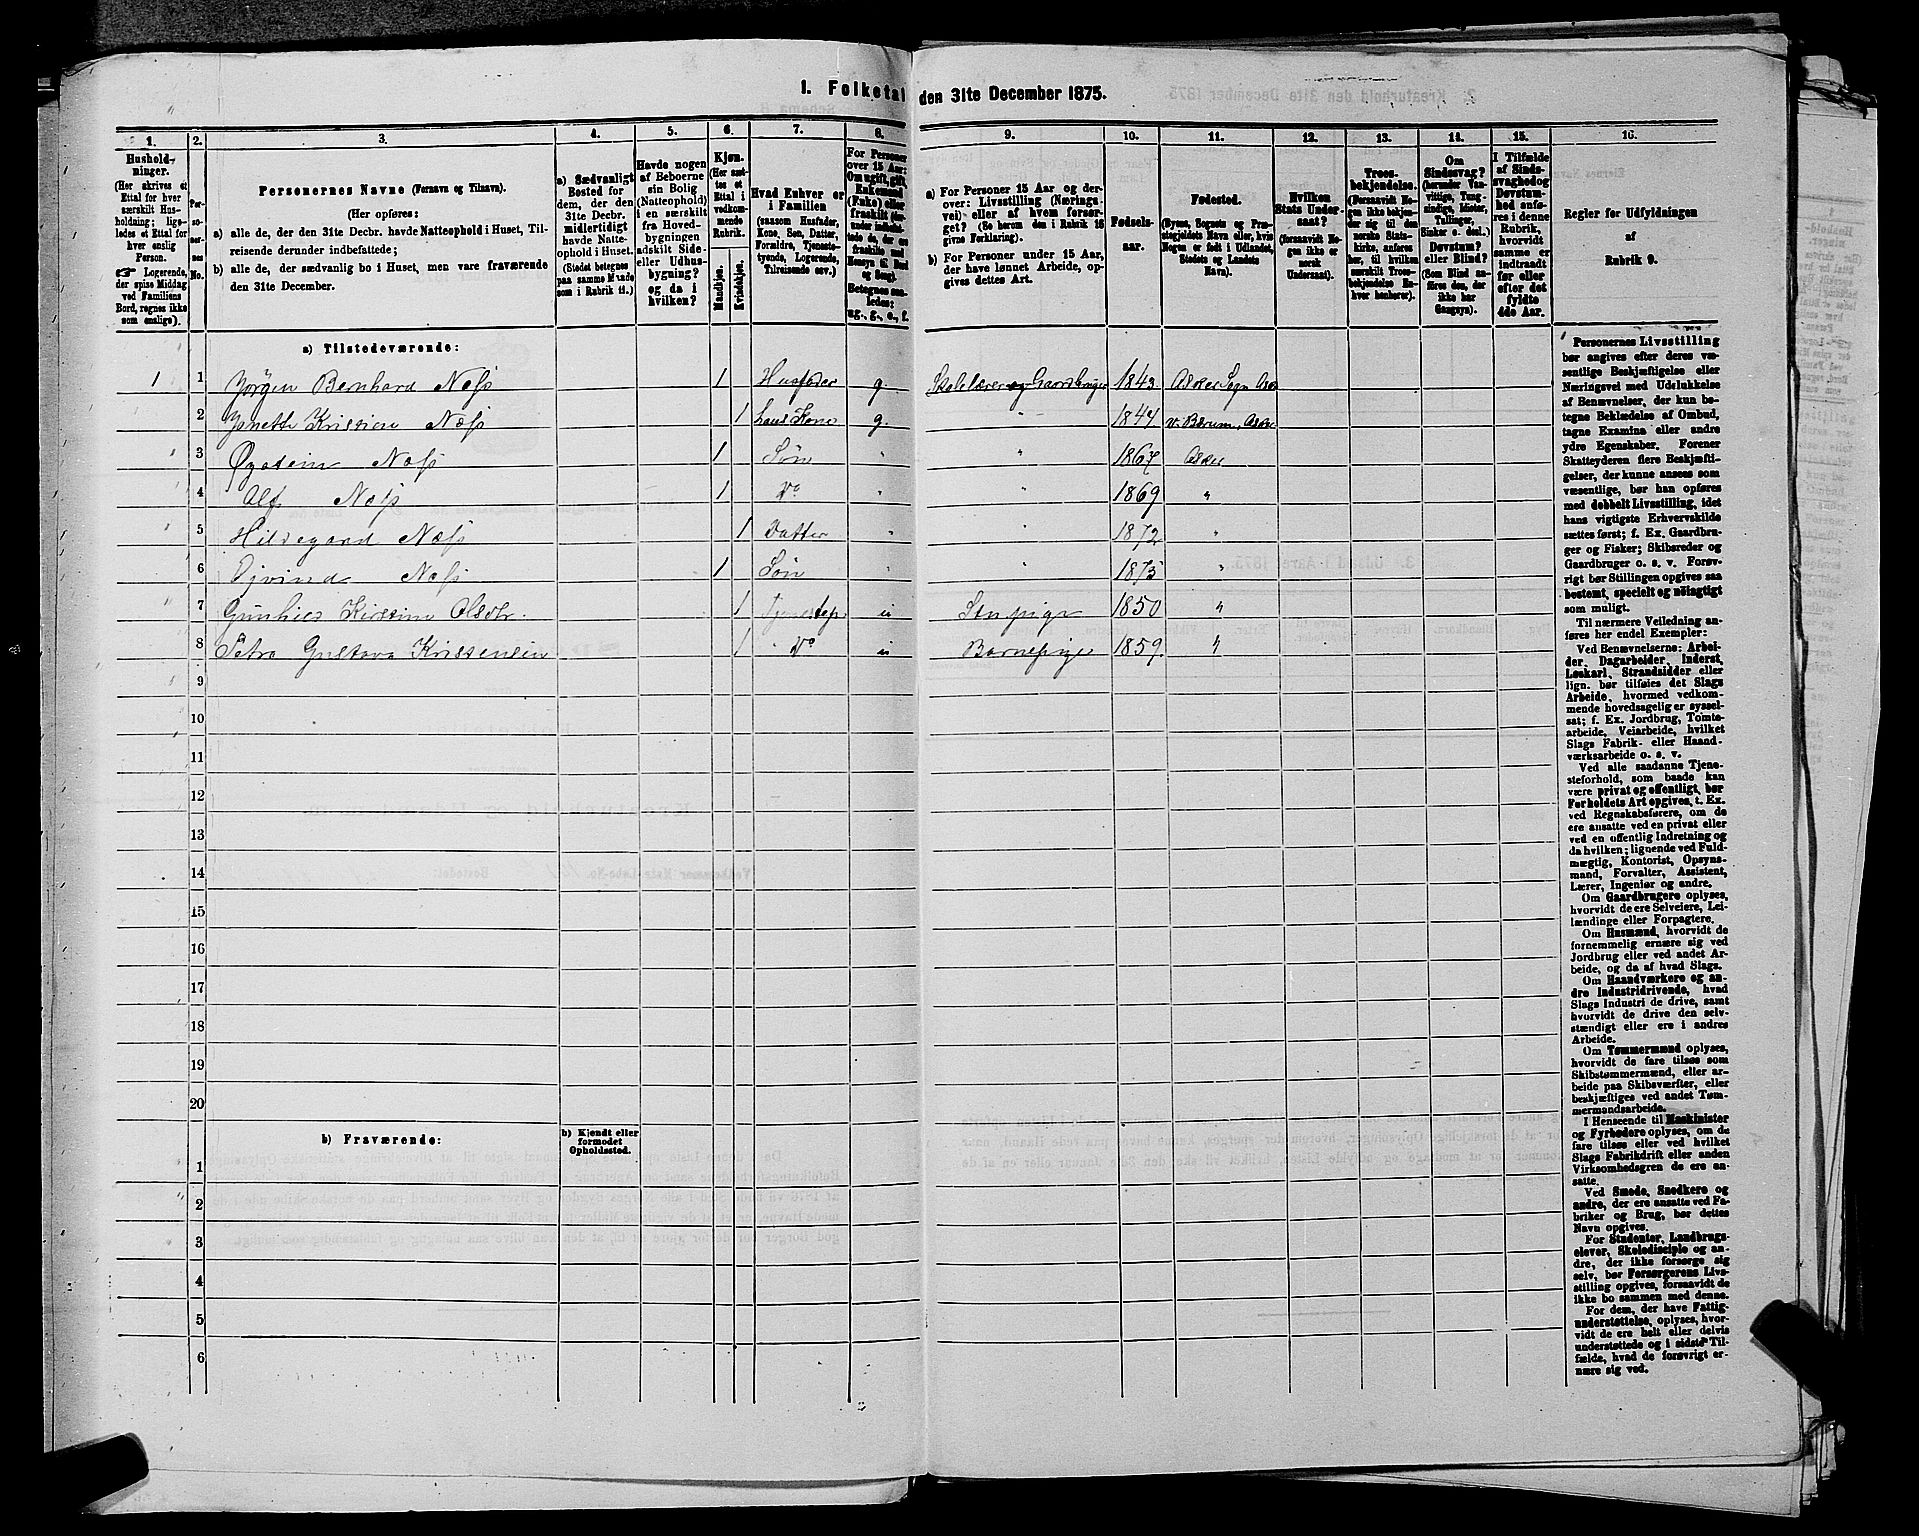 1. Folketal den 31te December 1875.
1. 2. 3. 4. 5. 6. 7. 8. 9. 10. 11. 12. 13. 14. 15. 16.
Hushold-
ninger.
(Her skrives et
Ettal for hver
særskilt Hus-
holdning; lige-
ledes et Ettal for
hver enslig
Person.
☞ Logerende,
der spise Middag
ved Familiens
Bord, regnes ikke
som enslige).
Per-
so-
ner-
nes
No.
Personernes Navne (Fornavn og Tilnavn).
(Her opføres:
a) alle de, der den 31te Decbr. havde Natteophold i Huset, Til-
reisende derunder indbefattede;
b) alle de, der sædvanlig bo i Huset, men vare fraværende
den 31te December.
a) Sædvanligt
Bosted for
dem, der den
31te Decbr.
midlertidigt
havde Natte-
ophold i Huset.
(Stedet betegnes
paa samme Maade
som i Rubrik 11.)
Havde nogen
af Beboerne
sin Bolig
(Natteophold)
i en særskilt
fra Hoved-
bygningen
adskilt Side-
eller Udhus-
bygning?
og da i
hvilken?
Kjøn.
(Her sæt-
tes et
Ettal i
vedkom-
mende
Rubrik.
Mandkjøn.
Kvindekjøn.
Hvad Enhver er
i Familien
(saasom Husfader,
Kone, Søn, Datter,
Forældre, Tjeneste-
tyende, Logerende,
Tilreisende osv.)
For Personer
over 15 Aar:
Om ugift, gift,
Enkemand
(Enke) eller
fraskilt (der-
under indbefat-
tede de, der ere
fraskilte med
Hensyn til Bord
og Seng).
Betegnes saa-
ledes:
ug., g., e., f.
a) For Personer 15 Aar og der-
over: Livsstilling (Nærings-
vei) eller af hvem forsør-
get? (Se herom den i Rubrik 16
givne Forklaring).
b) For Personer under 15 Aar,
der have lønnet Arbeide, op-
gives dettes Art.
Fødsels-
aar.
Fødested.
(Byens, Sognets og Præ-
stegjeldets Navn eller, hvis
Nogen er født i Udlandet,
Stedets og Landets
Navn).
Hvilken
Stats Under-
saat?
(forsaavidt No-
gen ikke er
norsk
Undersaat).
Troes-
bekjendelse.
(Forsaavidt No-
gen ikke bekjen-
der sig til den
norske Stats-
kirke, anføres
her, til hvilken
særskilt Troes-
bekjendelse En-
hver henhører).
Om
Sindssvag?
(herunder Van-
vittige, Tung-
sindige, Idioter,
Tullinger,
Sinker o. desl.)
Døvstum?
eller Blind?
(Som Blind an-
føres den, der
ikke har
Gangsyn).
I Tilfælde
af Sinds-
svaghed og
Døvstum-
hed anfø-
res i denne
Rubrik,
hvorvidt
samme er
indtraadt
før eller
efter det
fyldte
4de Aar.
Regler for Udfyldningen
af
Rubrik 9.
a) Tilstedeværende:
1 1 Jørgen Bernhard Næss 1 Husfader g. Skolelærer og Gaardbruger 1843 Asker Sogn Asker
2 Janette Kristine Næss 1 hans Kone g. " 1847 v. Bærum, Asker
3 Øystein Næss 1 Søn " " 1867 Asker
4 Alf Næss 1 Do " " 1869 "
5 Hildegard Næss 1 Datter " " 1872 "
6 Øjvind Næss 1 Søn " " 1873 "
7 Kirstine Olsdtr. 1 u 1850 "
8 Petra Gustava Kristensen 1 " Do u Barnepige 1859. "
9
10
11
12
13
14
15
16
17
18
19
20
b) Fraværende:
b) Kjendt eller
formodet
Opholdssted.
1
2
3
4
5
6
Personernes Livsstilling
bør angives efter deres væ-
sentlige Beskjæftigelse eller
Næringsvei med Udelukkelse
af Benævnelser, der kun be-
tegne Beklædelse af Ombud,
tagne Examina eller andre
ydre Egenskaber. Forener
Skatteyderen flere Beskjæfti-
gelser, der kunne ansees som
væsentlige, bør han opføres
med dobbelt Livsstilling, idet
hans vigtigste Erhvervskilde
sættes først; f. Ex. Gaardbru-
ger og Fisker; Skibsreder og
Gaardbruger o. s. v. Forøv-
rigt bør Stillingen opgives saa
bestemt, specielt og nøiagtigt
som muligt.
Til nærmere Veiledning an-
føres her endel Exempler:
Ved Benævnelserne: Arbei-
der, Dagarbeider, Inderst,
Løskarl, Strandsidder eller
lign. bør tilføies det Slags
Arbeide, hvormed vedkom-
mende hovedsagelig er syssel-
sat; f. Ex. Jordbrug, Tomte-
arbeide, Veiarbeide, hvilket
Slags Fabrik- eller Haand-
værksarbeide o. s. v.
Ved alle saadanne Tjene-
steforhold, som baade kan
være privat og offentligt, bør
Forholdets Art opgives, t. Ex.
ved Regnskabsførere, om de
ere ansatte ved en privat eller
ved en offentlig Indretning og
da hvilken; lignende ved Fuld-
mægtig, Kontorist, Opsyns-
mand, Forvalter, Assistent,
Lærer, Ingeniør og andre.
Om Gaardbrugere oplyses,
hvorvidt de ere Selveiere, Lei-
lændinge eller Forpagtere.
Om Husmænd, hvorvidt de
fornemmelig ernære sig ved
Jordbrug eller ved andet Ar-
beide, og da af hvad Slags.
Om Haandværkere og an-
dre Industridrivende, hvad
Slags Industri de drive, samt
hvorvidt de drive den selv-
stændigt eller ere i andres
Arbeide.
Om Tømmermænd oplyses,
hvorvidt de fare tilsøs som
Skibstømmermænd, eller ar-
beide paa Skibsværfter, eller
beskjæftiges ved andet Tøm-
mermandsarbeide.
I Henseende til Maskinister
og Fyrbødere oplyses, om de
fare tilsøs eller ved hvilket
Slags Fabrikdrift eller anden
Virksomhedsgren de ere an-
satte.
Ved Smede, Snedkere og
andre, der ere ansatte ved Fa-
briker og Brug, bør dettes
Navn opgives.
For Studenter, Landbrugs-
elever, Skoledisciple og an-
dre, der ikke forsørge sig
selv, bør Forsørgerens Livs-
stilling opgives, forsaavidt de
ikke bo sammen med denne.
For dem, der have Fattig-
understøttelse, oplyses, hvor-
vidt de ere helt eller delvis
understøttede og i sidste Til-
fælde, hvad de forøvrigt er-
nære sig ved.